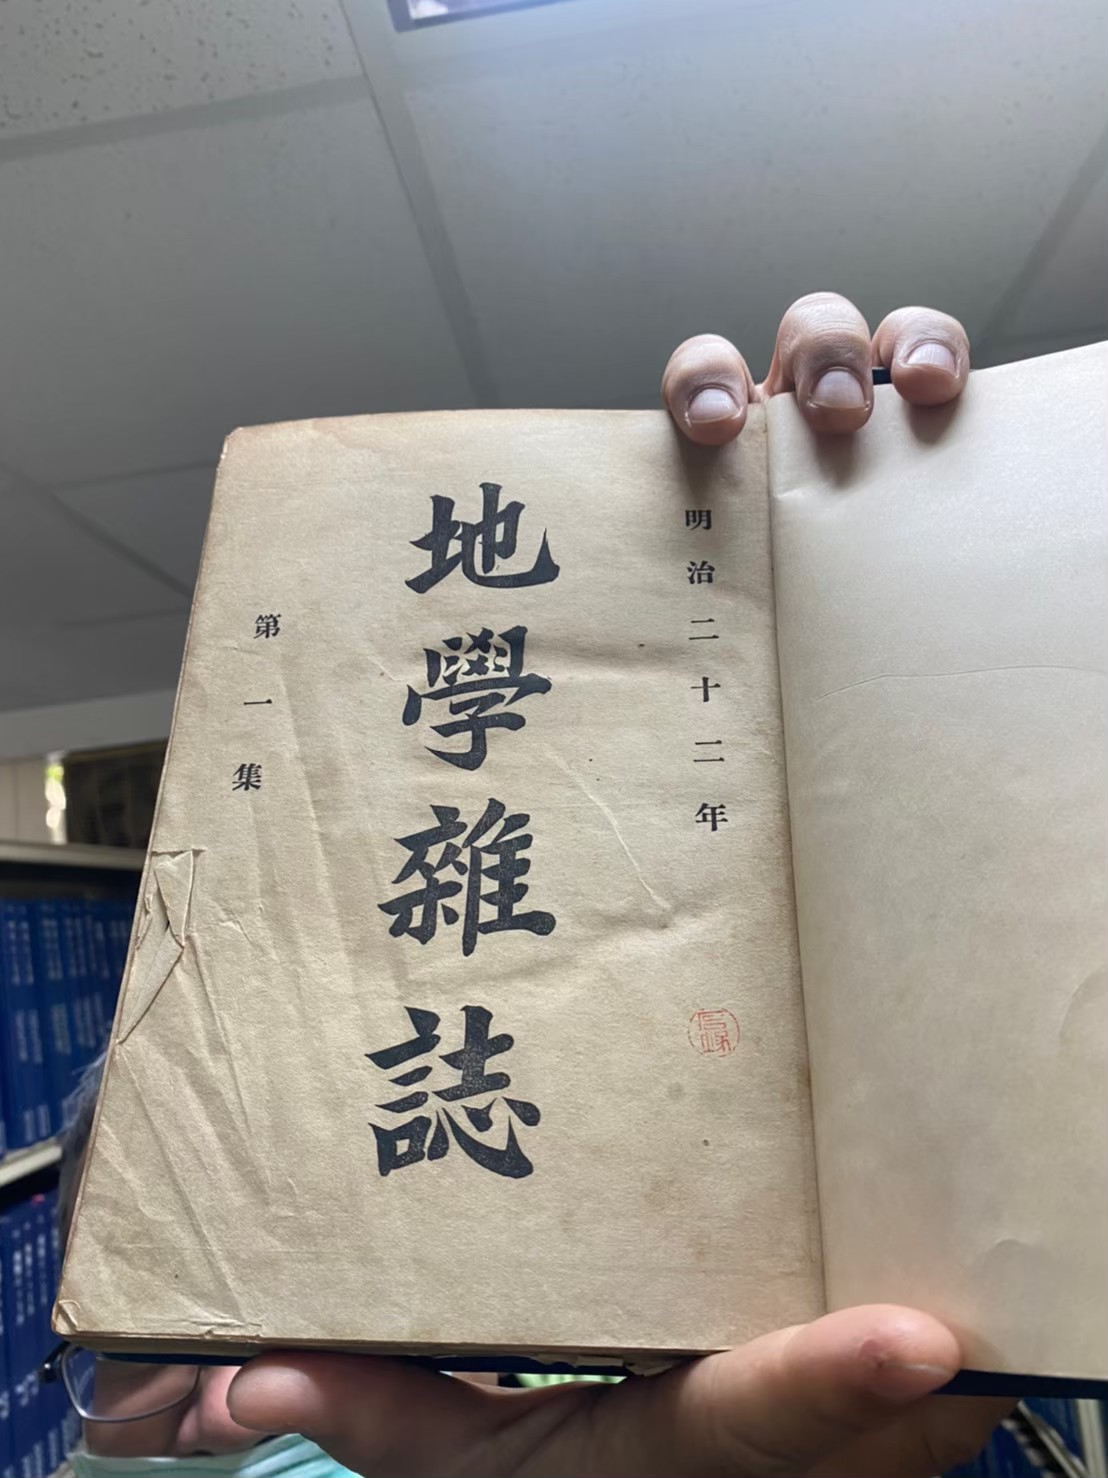 明治二十二年
地學雜誌
第一集